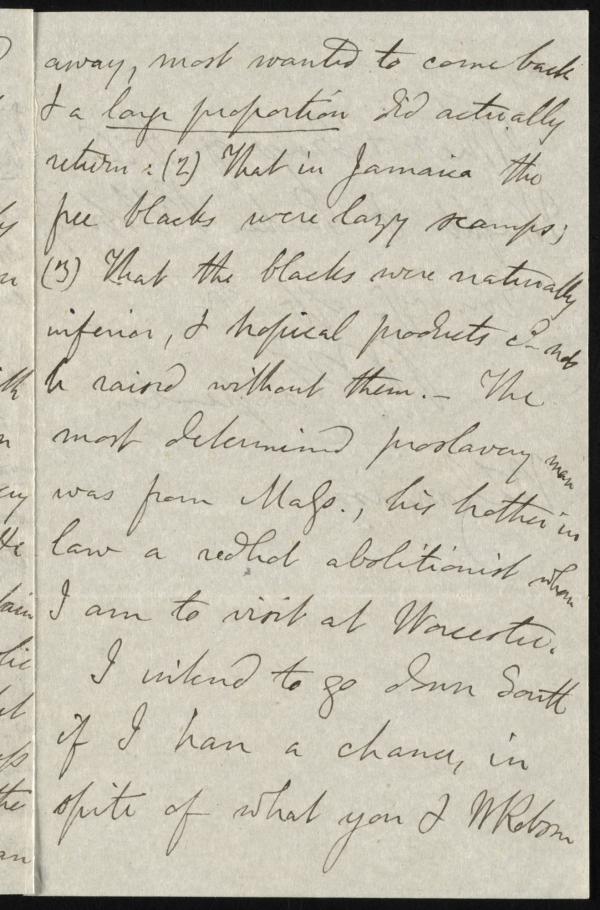 away, most wanted to come back
& a large proportion did actually
return: (2) That in Jamaica the
free blacks were lazy scamps;
(3) That the blacks were naturally
inferior, & tropical products cd not
be raised without them. – The
most determined proslavery man
was from Mass., his brother in
law a redhot abolitionist whom
I am to visit at Worcester.
I intend to go down South
if I have a chance, in
spite of what you & W Robson